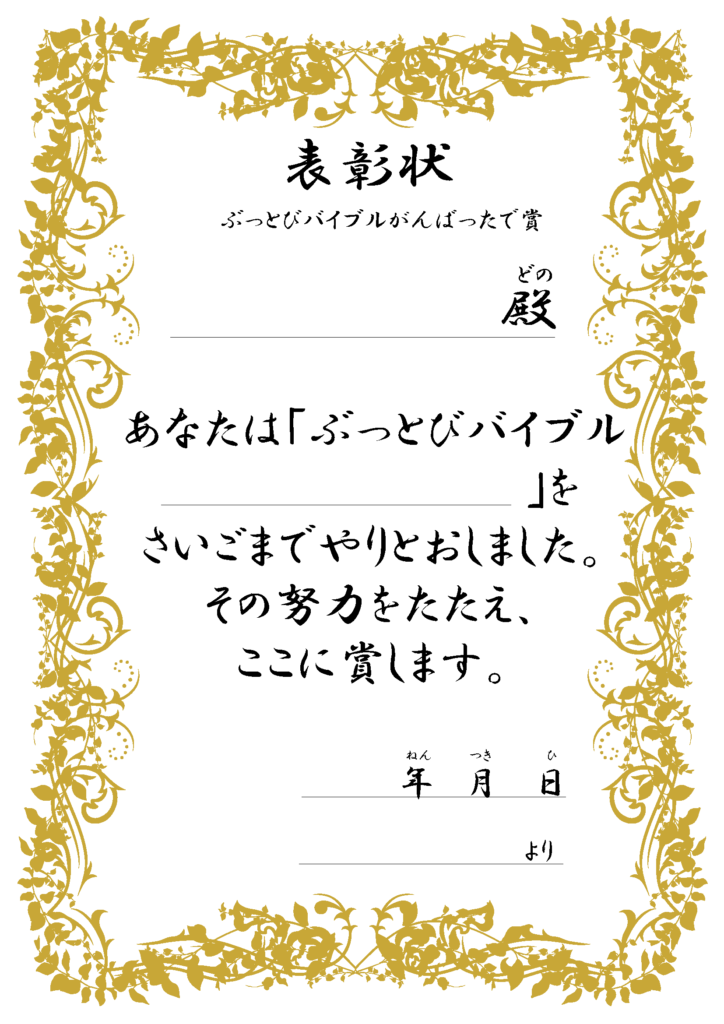 表彰状
ぶっとびバイブルがんばったで賞
どの
殿
あなたは「ぶっとびバイブル
」を
さいごまでやりとおしました。
その努力をたたえ、
ここに賞します。
ねん つき ひ
年 月 日
より